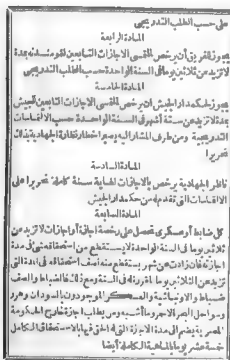 على حسب الطلب التدريجى
المادة الرابعة
يجوز للفريق أن يرخص للملتمسى الاجازات التابعين لقومندنه بمدة
لا تزيد عن ثلاثين يوما فى السنة الواحدة حسب الطلب التدريجى
المادة الخامسة
يجوز لحكمدار الجيش ان يرخص للملتمسى الاجازات التابعين للجيش
بمدة لا تزيد عن ستة أشهر فى السنة الواحدة حسب الالتماسات
التدريجية ومن طرف المشار اليه يصير اخطار نظارة الجهادية بذلك
تحريرا
المادة السادسة
ناظر الجهادية يرخص بالاجازات لغاية سنة كاملة تحريرا على
الالتماسات التى تقدم له من حكمدار الجيش
المادة السابعة
كل ضابط أو عسكرى تحصل على رخصة اجازة أو اجازات لا تزيد عن
ثلاثين يوما فى السنة الواحدة لا يستقطع من استحقاقه شئ فى مدة
اجازته فان زادت عن شهر يستقطع منه نصف استحقاقه فى المدة التى
تزيد عن الثلاثين يوما المقررة فى السنة ومع ذلك فالضباط والصف
ضباط والاونباشية والعسكر الموجودون بالسودان وهرر
وسواحل البحر الاحمر وما أشبه ومن يطلب اجازة خارج الحكومة
المصرية يضم الى مدة الاجازة التى له الحق فيها بالاستحقاق الكامل
خمسة عشر يوما بالماهية الكاملة أيضا